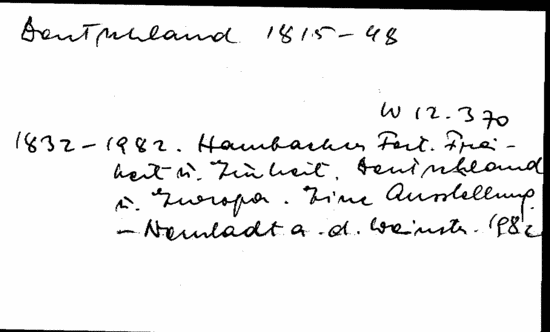 Deutschland 1815-48
W 12.370
1832-1982. Hambacher Fest. Frei-
heit u. Einheit, Deutschland
u. Europa. Eine Ausstellung.
- Neustadt a. d. Weinstr. 1982